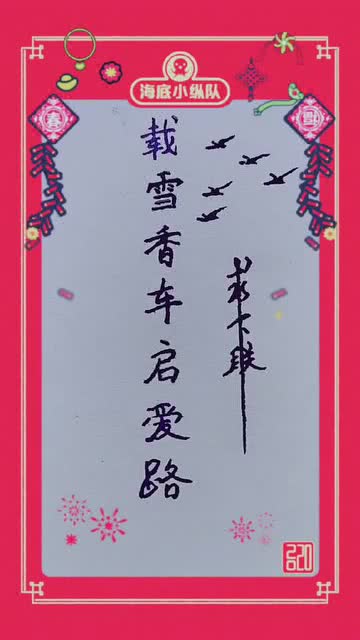 海底小纵队
春
载雪香车启爱路
求下联